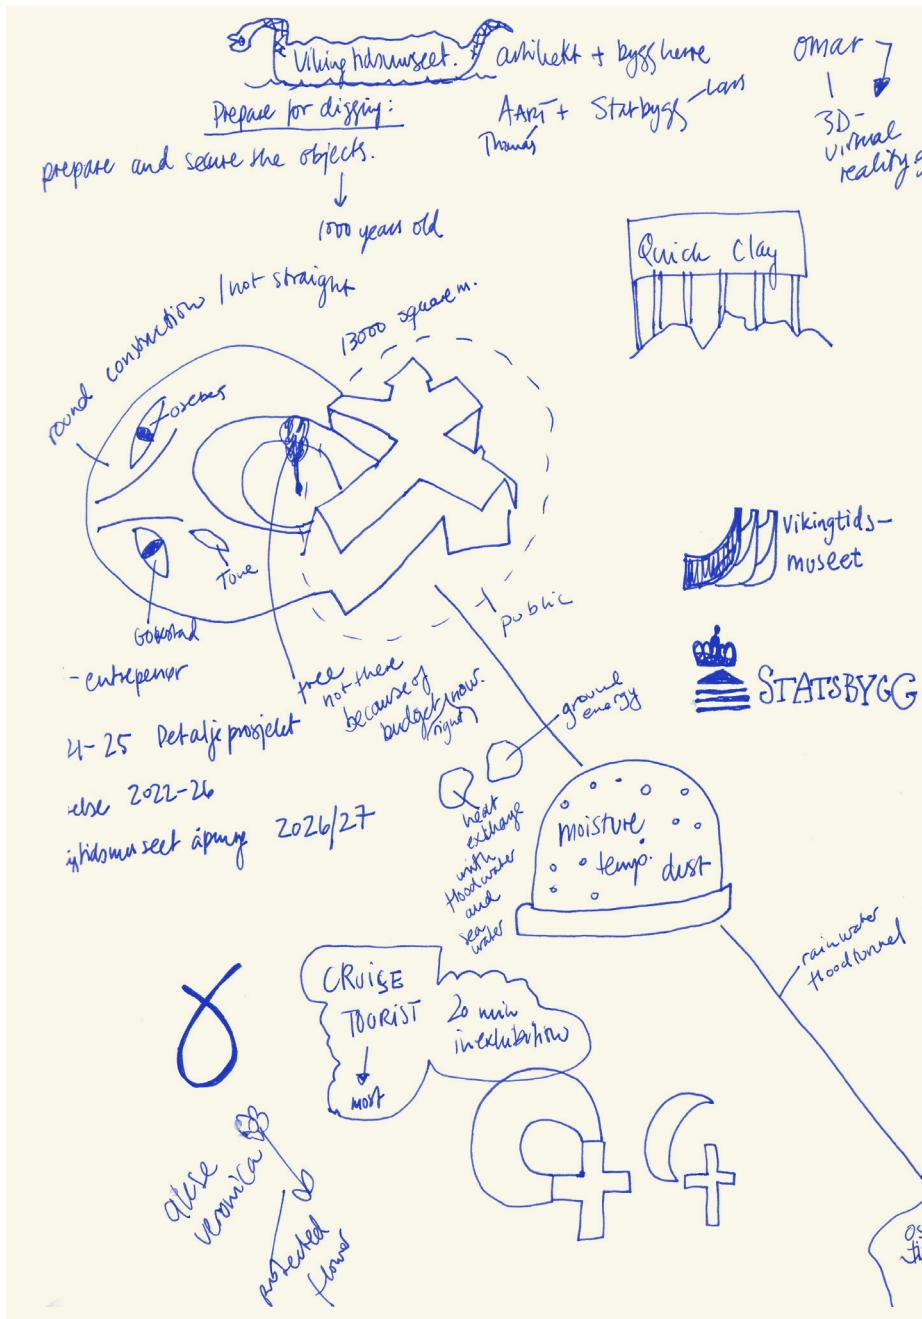 Vikingtidsmuseet.
arkitekt + byggherre
Omar
Prepare for digging:
AART + Statsbygg - Lars
Thomas
3D-
virtual
reality
prepare and secure the objects.
1000 years old
Quick Clay
round construction / not straight
13000 square m.
Oseberg
Tune
Gokstad
public
Vikingtids-
museet
STATSBYGG
- entreprenør
tree
not there
because of
budget
right now.
21-25 Detaljeprosjekt
else 2022-26
tidsmuseet åpning 2026/27
ground
energy
heat
exchange
with
floodwater
and
sea
water
moisture
temp. dust
rainwater
floodtunnel
CRUISE
TOURIST
most
20 min
in exhibition
akse
veronica
protected
flower